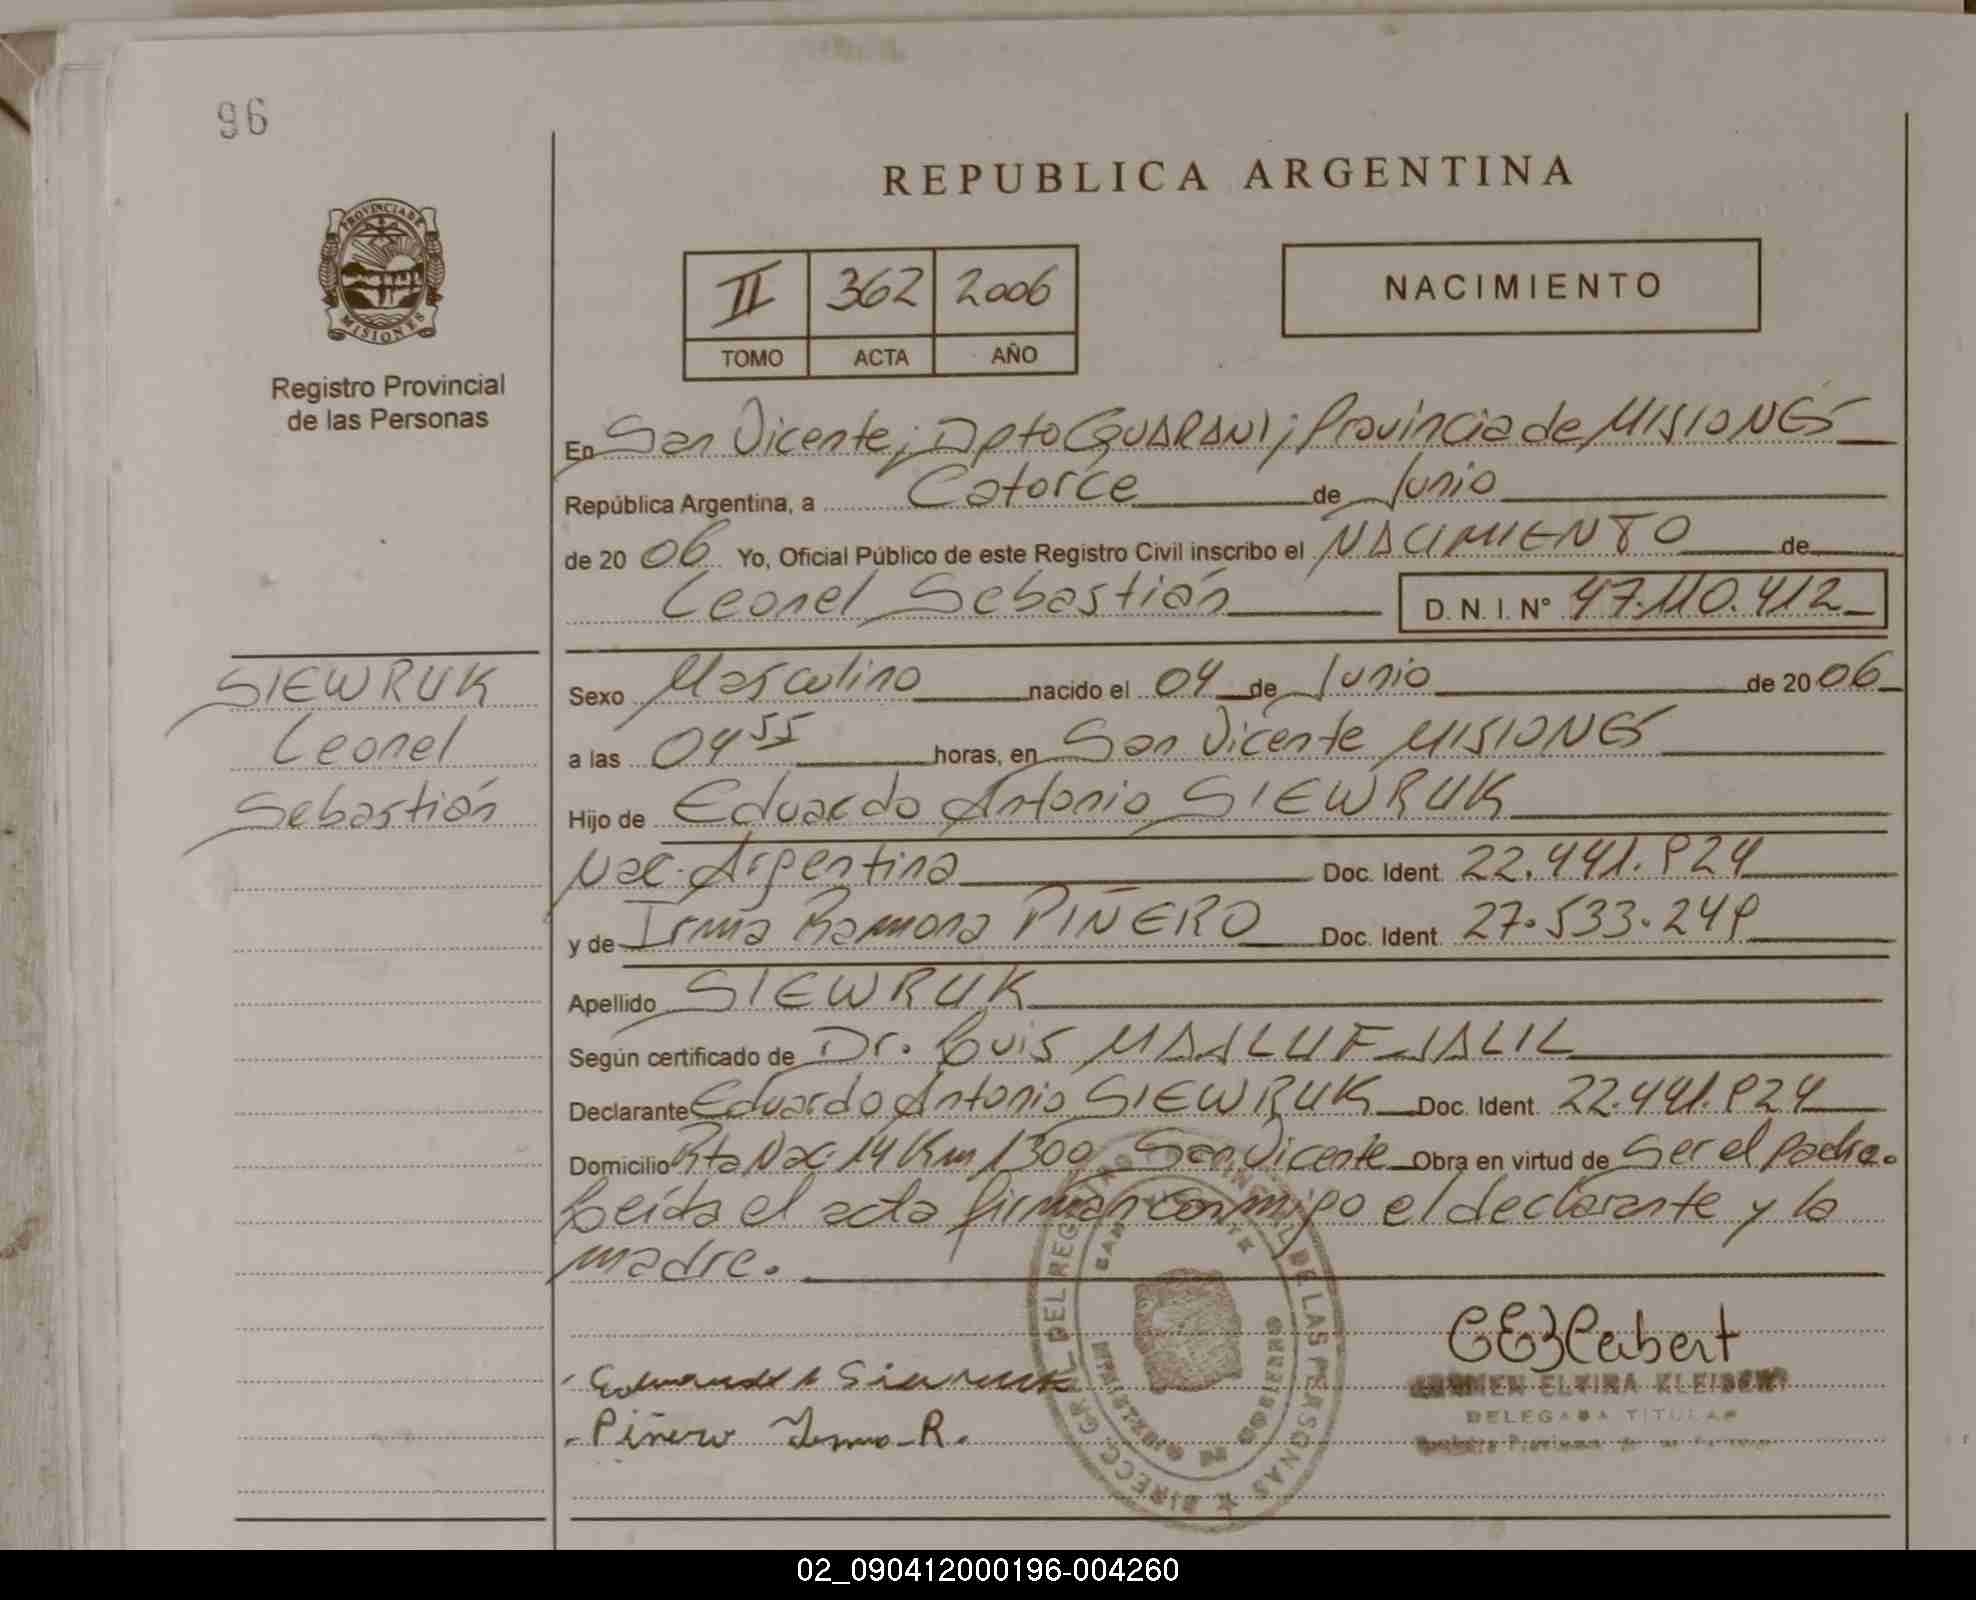 96
PROVINCIA DE
MISIONES
Registro Provincial
de las Personas
REPUBLICA ARGENTINA
II 362 2006
TOMO ACTA AÑO
NACIMIENTO
En San Vicente; Dpto GUARANI; Provincia de MISIONES
República Argentina, a Catorce de Junio
de 20 06 Yo, Oficial Público de este Registro Civil inscribo el NACIMIENTO de
Leonel Sebastián D. N. I. Nº 47.110.412
SIEWRUK
Leonel
Sebastián
Sexo Masculino nacido el 04 de Junio de 20 06
a las 04 55 horas, en San Vicente MISIONES
Hijo de Eduardo Antonio SIEWRUK
Nac. Argentina Doc. Ident. 22.441.924
y de Irma Ramona PIÑERO Doc. Ident. 27.533.249
Apellido SIEWRUK
Según certificado de Dr. Luis MAALUF JALIL
Declarante Eduardo Antonio SIEWRUK Doc. Ident. 22.441.924
Domicilio Rta Nac. 14 Km 1300 San Vicente Obra en virtud de Ser el padre.
Leída el acta firman conmigo el declarante y la
madre.
DIRECC. GRAL. DEL REGISTRO PROVINCIAL DE LAS PERSONAS
SAN VICENTE
MINISTERIO DE GOBIERNO
Eduardo A Siewruk
Piñero Irma R.
CARMEN ELVIRA
DELEGADA TITULAR
02_090412000196-004260